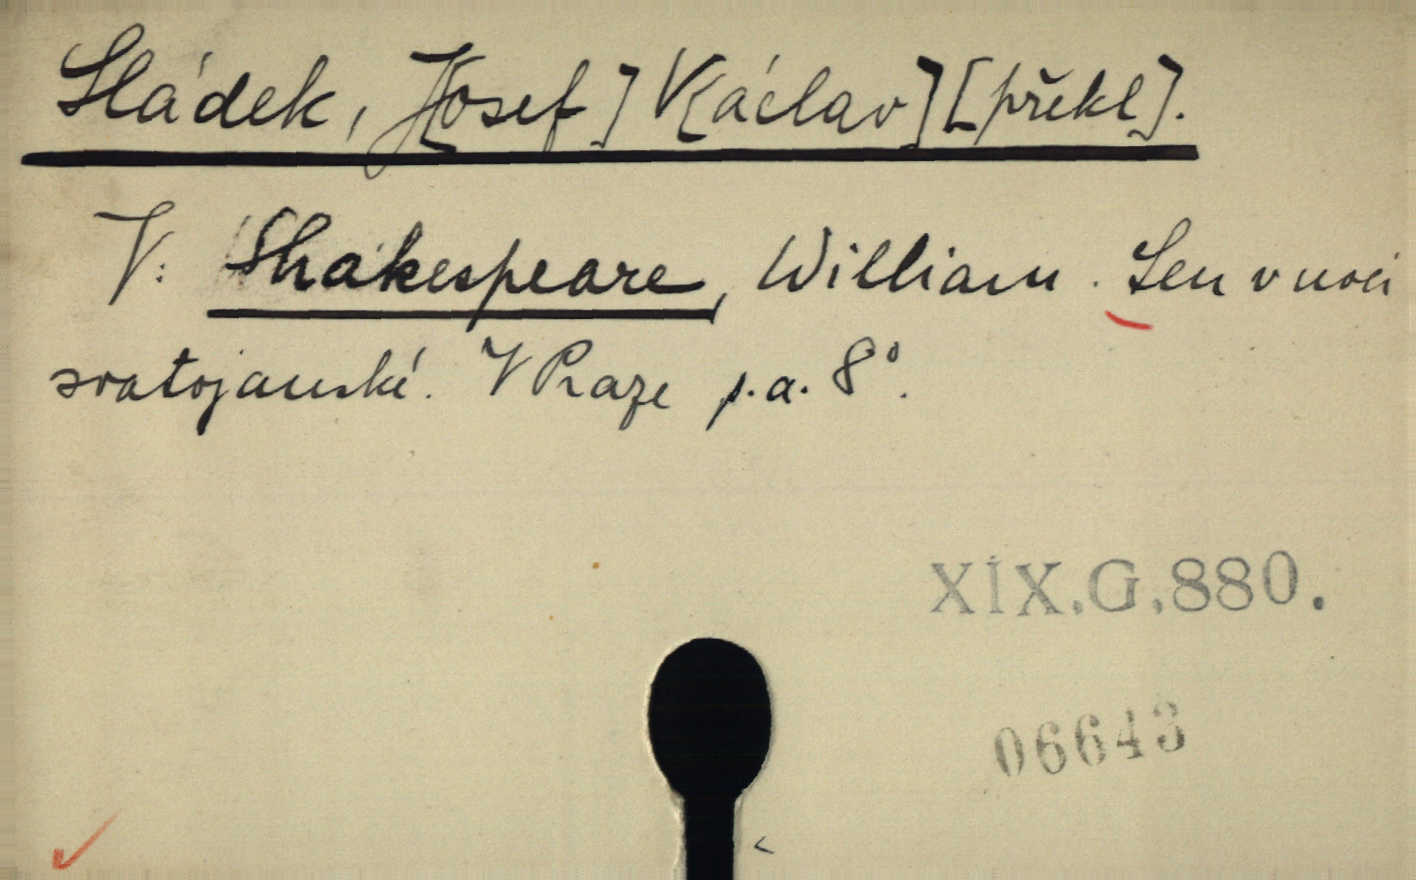 Sládek, J[osef] V[áclav] [překl].
V: Shakespeare, William. Sen v noci
svatojanské. V Praze s.a. 8°.
XIX.G.880.
06643